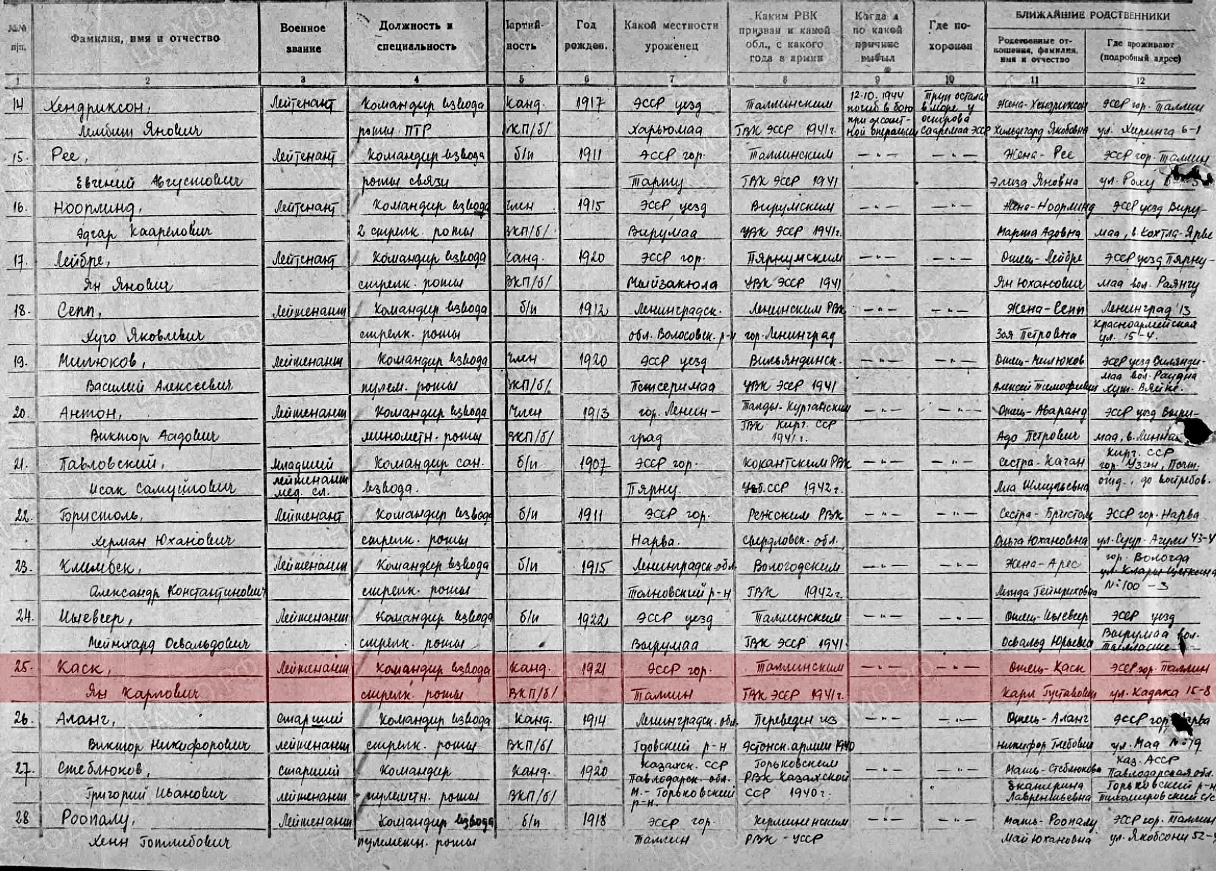 №№ п|п. Фамилия, имя и отчество Военное звание Должность и специальность Партий- ность Год рожден. Какой местности уроженец Каким РВК призван и какой обл., с какого года в армии Когда и по какой причине выбыл Где по- хоронен БЛИЖАЙШИЕ РОДСТВЕННИКИ
Родственные от- ношения, фамилия, имя и отчество Где проживают (подробный адрес)
1 2 3 4 5 6 7 8 9 10 11 12
14 Хендриксон, Лейтенант Командир взвода Канд. 1917 ЭССР уезд Таллинским 12.10.1944 погиб в бою Труп остался в море у Жена-Хендриксон ЭССР гор. Таллин
Лембит Янович роты ПТР ВКП/б/ Харьюмаа ГВК ЭССР 1941г. при десант- ной операции острова Сааремаа ЭССР Хильдегард Якововна ул. Херинга 6-1
15. Рее, Лейтенант Командир взвода б/п 1911 ЭССР гор. Таллинским —"— —"— Жена-Рее ЭССР гор. Таллин
Евгений Августович роты связи Тарту ГВК ЭССР 1941 Элиза Яновна ул. Раху
16. Ноорлинд, Лейтенант Командир взвода Член 1915 ЭССР уезд Вирумским —"— —"— Жена-Ноорлинд ЭССР уезд Виру-
Эдгар Каарелович 2 стрелк. роты ВКП/б/ Вирумаа УВК ЭССР 1941г. Марта Адовна маа, в. Кохтла-Ярве
17. Лейбре, Лейтенант Командир взвода Канд. 1920 ЭССР гор. Пярнумским —"— —"— Отец-Лейбре ЭССР уезд Пярну-
Ян Янович стрелк. роты ВКП/б/ Мыйзакюла УВК ЭССР 1941 Ян Юхансович маа вол. Раянгу
18. Сепп, Лейтенант Командир взвода б/п 1912 Ленинградск. Ленинским РВК —"— —"— Жена-Сепп Ленинград 13
Хуго Яковлевич стрелк. роты обл. Волосовск. р-н гор. Ленинград Зоя Петровна Красноармейская ул. 15-4.
19. Милюков, Лейтенант Командир взвода Член 1920 ЭССР уезд Вильяндинск. —"— —"— Отец-Милюков ЭССР уезд Вилянди-
Василий Алексеевич пулем. роты ВКП/б/ Петсеримаа УВК ЭССР 1941 Алексей Тимофеевич маа вол. Раудна хут. Вяйке.
20. Антон, Лейтенант Командир взвода Член 1913 гор. Ленин- Талды-Курганским —"— —"— Отец-Аваранд ЭССР уезд Виру-
Виктор Аадович минометн. роты ВКП/б/ град ГВК Кирг. ССР 1941г. Адо Петрович маа, в. Линна
21. Павловский, Младший Командир сан. б/п 1907 ЭССР гор. Кокантским РВК —"— —"— Сестра-Каган Кирг. ССР гор. Узген, Почт.
Исак Самуйлович лейтенант мед. сл. взвода. Пярну. Узб. ССР 1942г. Лиа Шмульевна отд., до востребов.
22. Бристоль, Лейтенант Командир взвода б/п 1911 ЭССР гор. Режским РВК —"— —"— Сестра-Бристоль ЭССР гор. Нарва
Херман Юханович стрелк. роты Нарва. Свердловск. обл. Ольга Юхановна ул. Суур-Агули 43-4
23. Климбек, Лейтенант Командир взвода б/п 1915 Ленинградск. обл. Вологодским —"— —"— Жена-Арес гор. Вологда ул. Клары Цеткина
Александр Константинович стрелк. роты р-н ГВК 1942г. Линда Гейнриховна № 100 -3
24. Ыьевеер, Лейтенант Командир взвода б/п 1922 ЭССР уезд Таллинским —"— —"— Отец-Ыьевеер ЭССР уезд
Мейнхард Освальдович стрелк. роты Вырумаа ГВК ЭССР 1941. Освальд Юрьевич Вырумаа вол.
25. Каск, Лейтенант Командир взвода Канд. 1921 ЭССР гор. Таллинским —"— —"— Отец-Каск ЭССР гор. Таллин
Ян Карлович стрелк. роты ВКП/б/ Таллин ГВК ЭССР 1941г. Карл Густавович ул. Кадака 15-8
26. Аланг, Старший Командир взвода Канд. 1914 Ленинградск. обл. Переведен из —"— —"— Отец-Аланг ЭССР гор. Нарва
Виктор Никифорович лейтенант стрелк. роты ВКП/б/ Гдовский р-н Эстонск. армии 1940 Никифор Глебович ул. Маа №19
27 Стеблюков, Старший Командир Канд. 1920 Казахск. ССР Павлодарск. обл. Горьковским —"— —"— Мать-Стеблюкова Каз. АССР Павлодарская обл.
Григорий Иванович лейтенант пулеметн. роты ВКП/б/ М.-Горьковский р-н. РВК Казахской ССР 1940г. Екатерина Лаврентьевна Горьковский р-н Тихомировский с/с
28 Роопалу, Лейтенант Командир взвода б/п 1918 ЭССР гор. Херминским —"— —"— Мать-Роопалу ЭССР гор. Таллин
Хенн Готлибович пулеметн. роты Таллин РВК - УССР Май Юхановна ул. Якобсони 52-